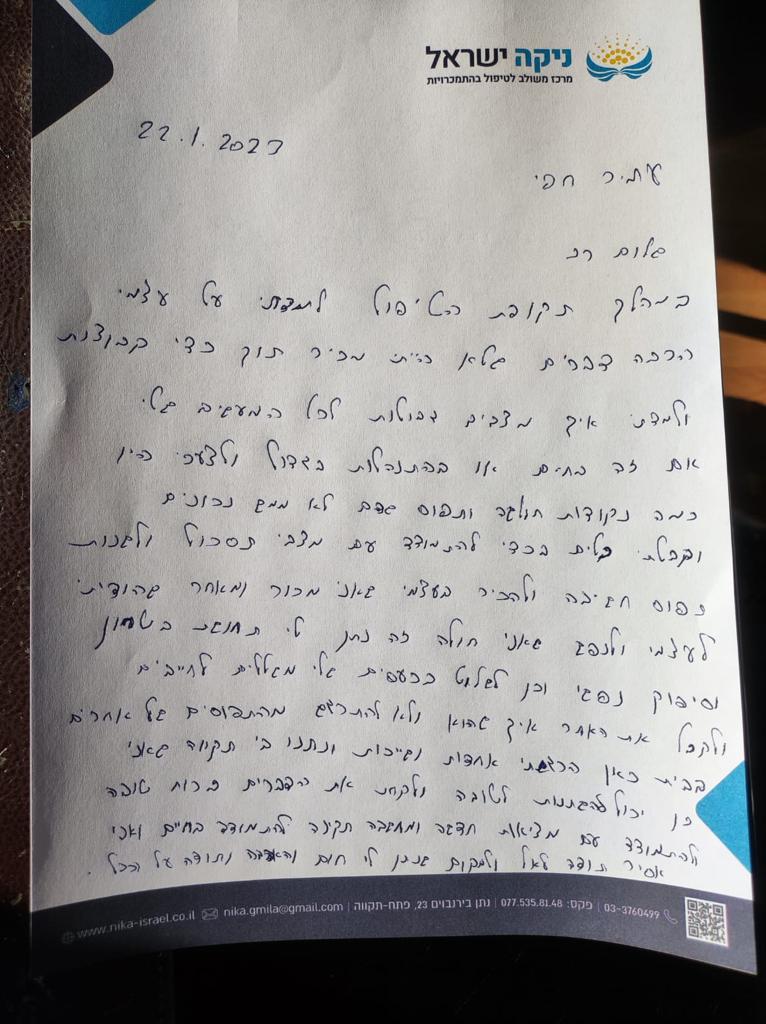 ניקה ישראל
מרכז משולב לטיפול בהתמכרויות
22.1.2023
עתיר חפי
שלום רב
במהלך תקופת הטיפול למדתי על עצמי
הרבה דברים שלא הייתי מכיר תוך כדי קבוצות
ולמדתי איך מצבים גבולות לכל המעשים שלי
אם זה בחיים או בהתנהלות בגדול ולצערי היו
כמה נקודות חולשה ותפוס שהם לא ממש נכונים
וקבלתי כלים בכדי להתמודד עם מצבי תסכול ולשנות
דפוס חשיבה ולהכיר בעצמי שאני מכור ומאחר שהודיתי
לעצמי ולנפש שאני חולה זה נתן לי תחושת בטחון
וסיפוק נפשי וכן לשלוט בכעסים שלי משלילים לחייבים
ולקבל את האחר איך שהוא ולא להתרגש מהתפוסים של אחרים
בבית כאן הרגשתי אחדות ושייכות ונתנו בי תקווה שאני
כן יכול להשתנות לטובה ולקחת את הדברים ברוח טובה
ולהתמודד עם מציאות חדשה ומחשבה תקינה להתמודד בחיים ואני
אסיר תודה לאל ולמקום שנתן לי חום ואהבה ותודה על הכל.
www.nika-israel.co.il nika.gmila@gmail.com | נתן בירנבוים 23, פתח-תקווה | פקס: 077.535.81.48 | 03-3760499